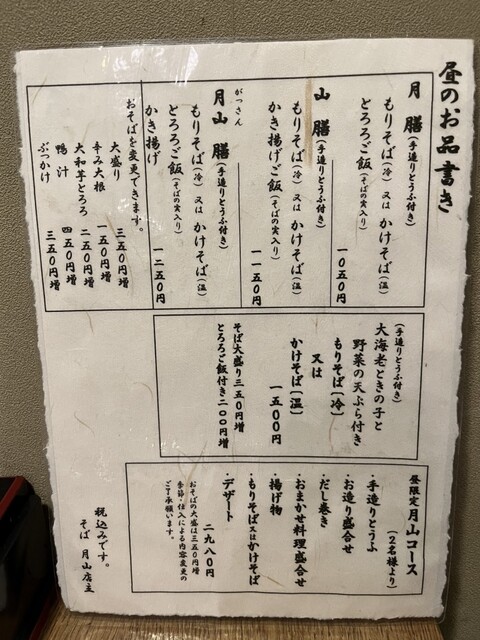 昼のお品書き
月膳(手造りとうふ付き)
もりそば(冷)又はかけそば(温)
とろろご飯(そばの実入り)
一〇五〇円
山膳(手造りとうふ付き)
もりそば(冷)又はかけそば(温)
かき揚げご飯(そばの実入り)
一一五〇円
がっさん
月山膳(手造りとうふ付き)
もりそば(冷)又はかけそば(温)
とろろご飯(そばの実入り)
かき揚げ
一二五〇円
おそばを変更できます。
大盛り 三五〇円増
辛み大根 一五〇円増
大和芋とろろ 二五〇円増
鴨汁 四五〇円増
ぶっかけ 三五〇円増
(手造りとうふ付き)
大海老ときの子と
野菜の天ぷら付き
もりそば(冷)
又は
かけそば(温)
一五〇〇円
そば大盛り三五〇円増
とろろご飯付き二〇〇円増
昼限定月山コース
(2名様より)
・手造りとうふ
・お造り盛合せ
・だし巻き
・おまかせ料理盛合せ
・揚げ物
・もりそば又はかけそば
・デザート
二九八〇円
おそばの大盛は三五〇円増
季節・仕入による内容変更の
ご了承願います。
税込みです。
そば 月山店主